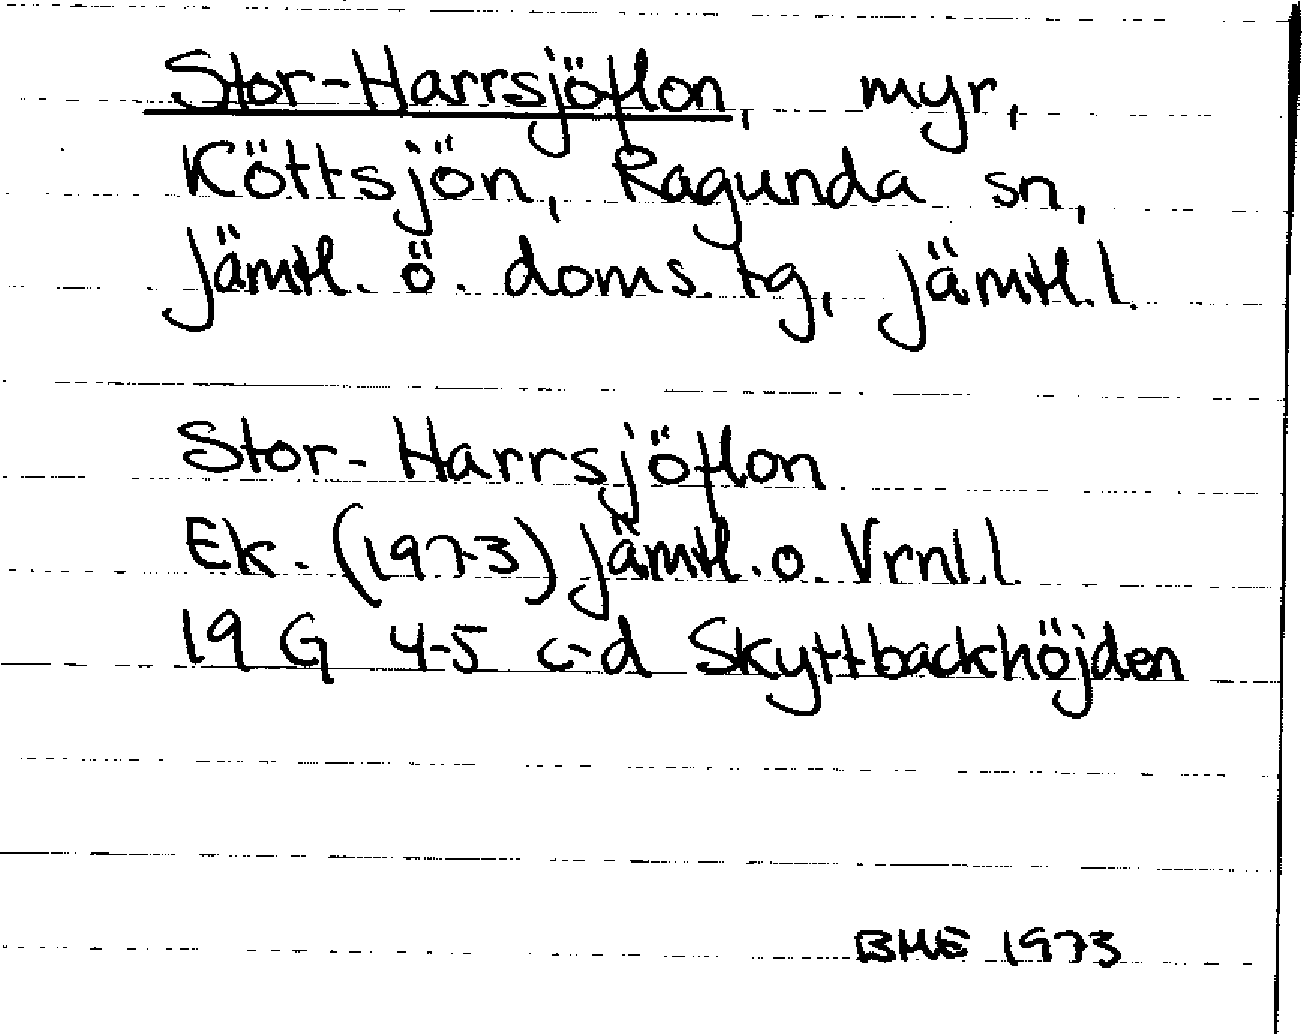 Stor-Harrsjöflon, myr,
Köttsjön, Ragunda sn,
Jämtl. ö. doms. tg, Jämtl. l.
Stor-Harrsjöflon
Ek. (1973) Jämtl. o. Vrnl. l.
19 G 4-5 c-d Skyttbackhöjden
BME 1973